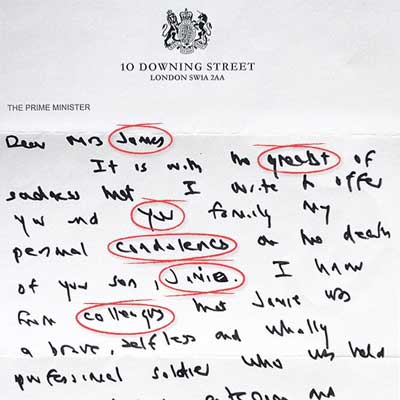 10 DOWNING STREET
LONDON SW1A 2AA
THE PRIME MINISTER
Dear Mrs James
It is with the greatst of
sadness that I write to offer
you and your family my
personal condolencs on the death
of your son, Jamie. I know
from colleagus that Jamie was
a brave, selfless and wholly
professional soldier who was held